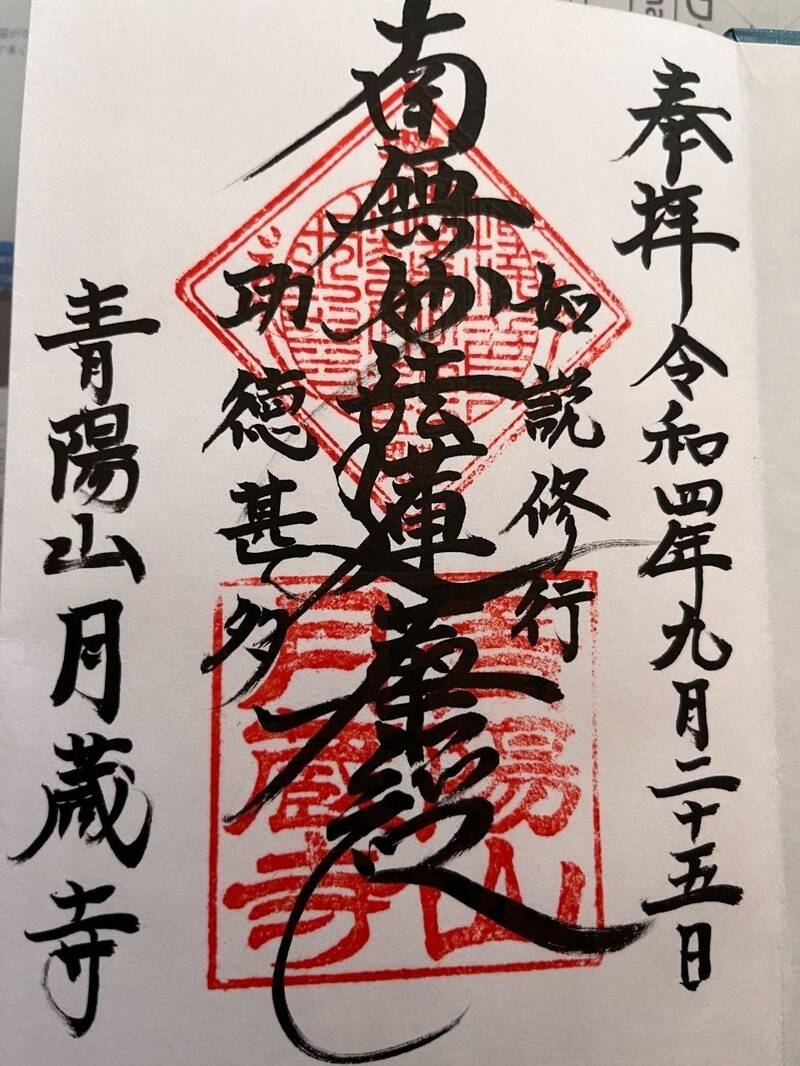 奉拝 令和四年九月二十五日
如説修行
南無妙法蓮華経
功徳甚多
青陽山月蔵寺
青陽山
月蔵寺